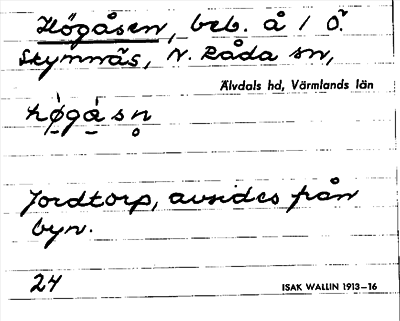 Högåsen, beb. å 1 Ö.
Skymnäs, N. Råda sn,
Älvdals hd, Värmlands län
hǿ̣gá̱sn̥
Jordtorp, avsides från
byn.
24
ISAK WALLIN 1913–16